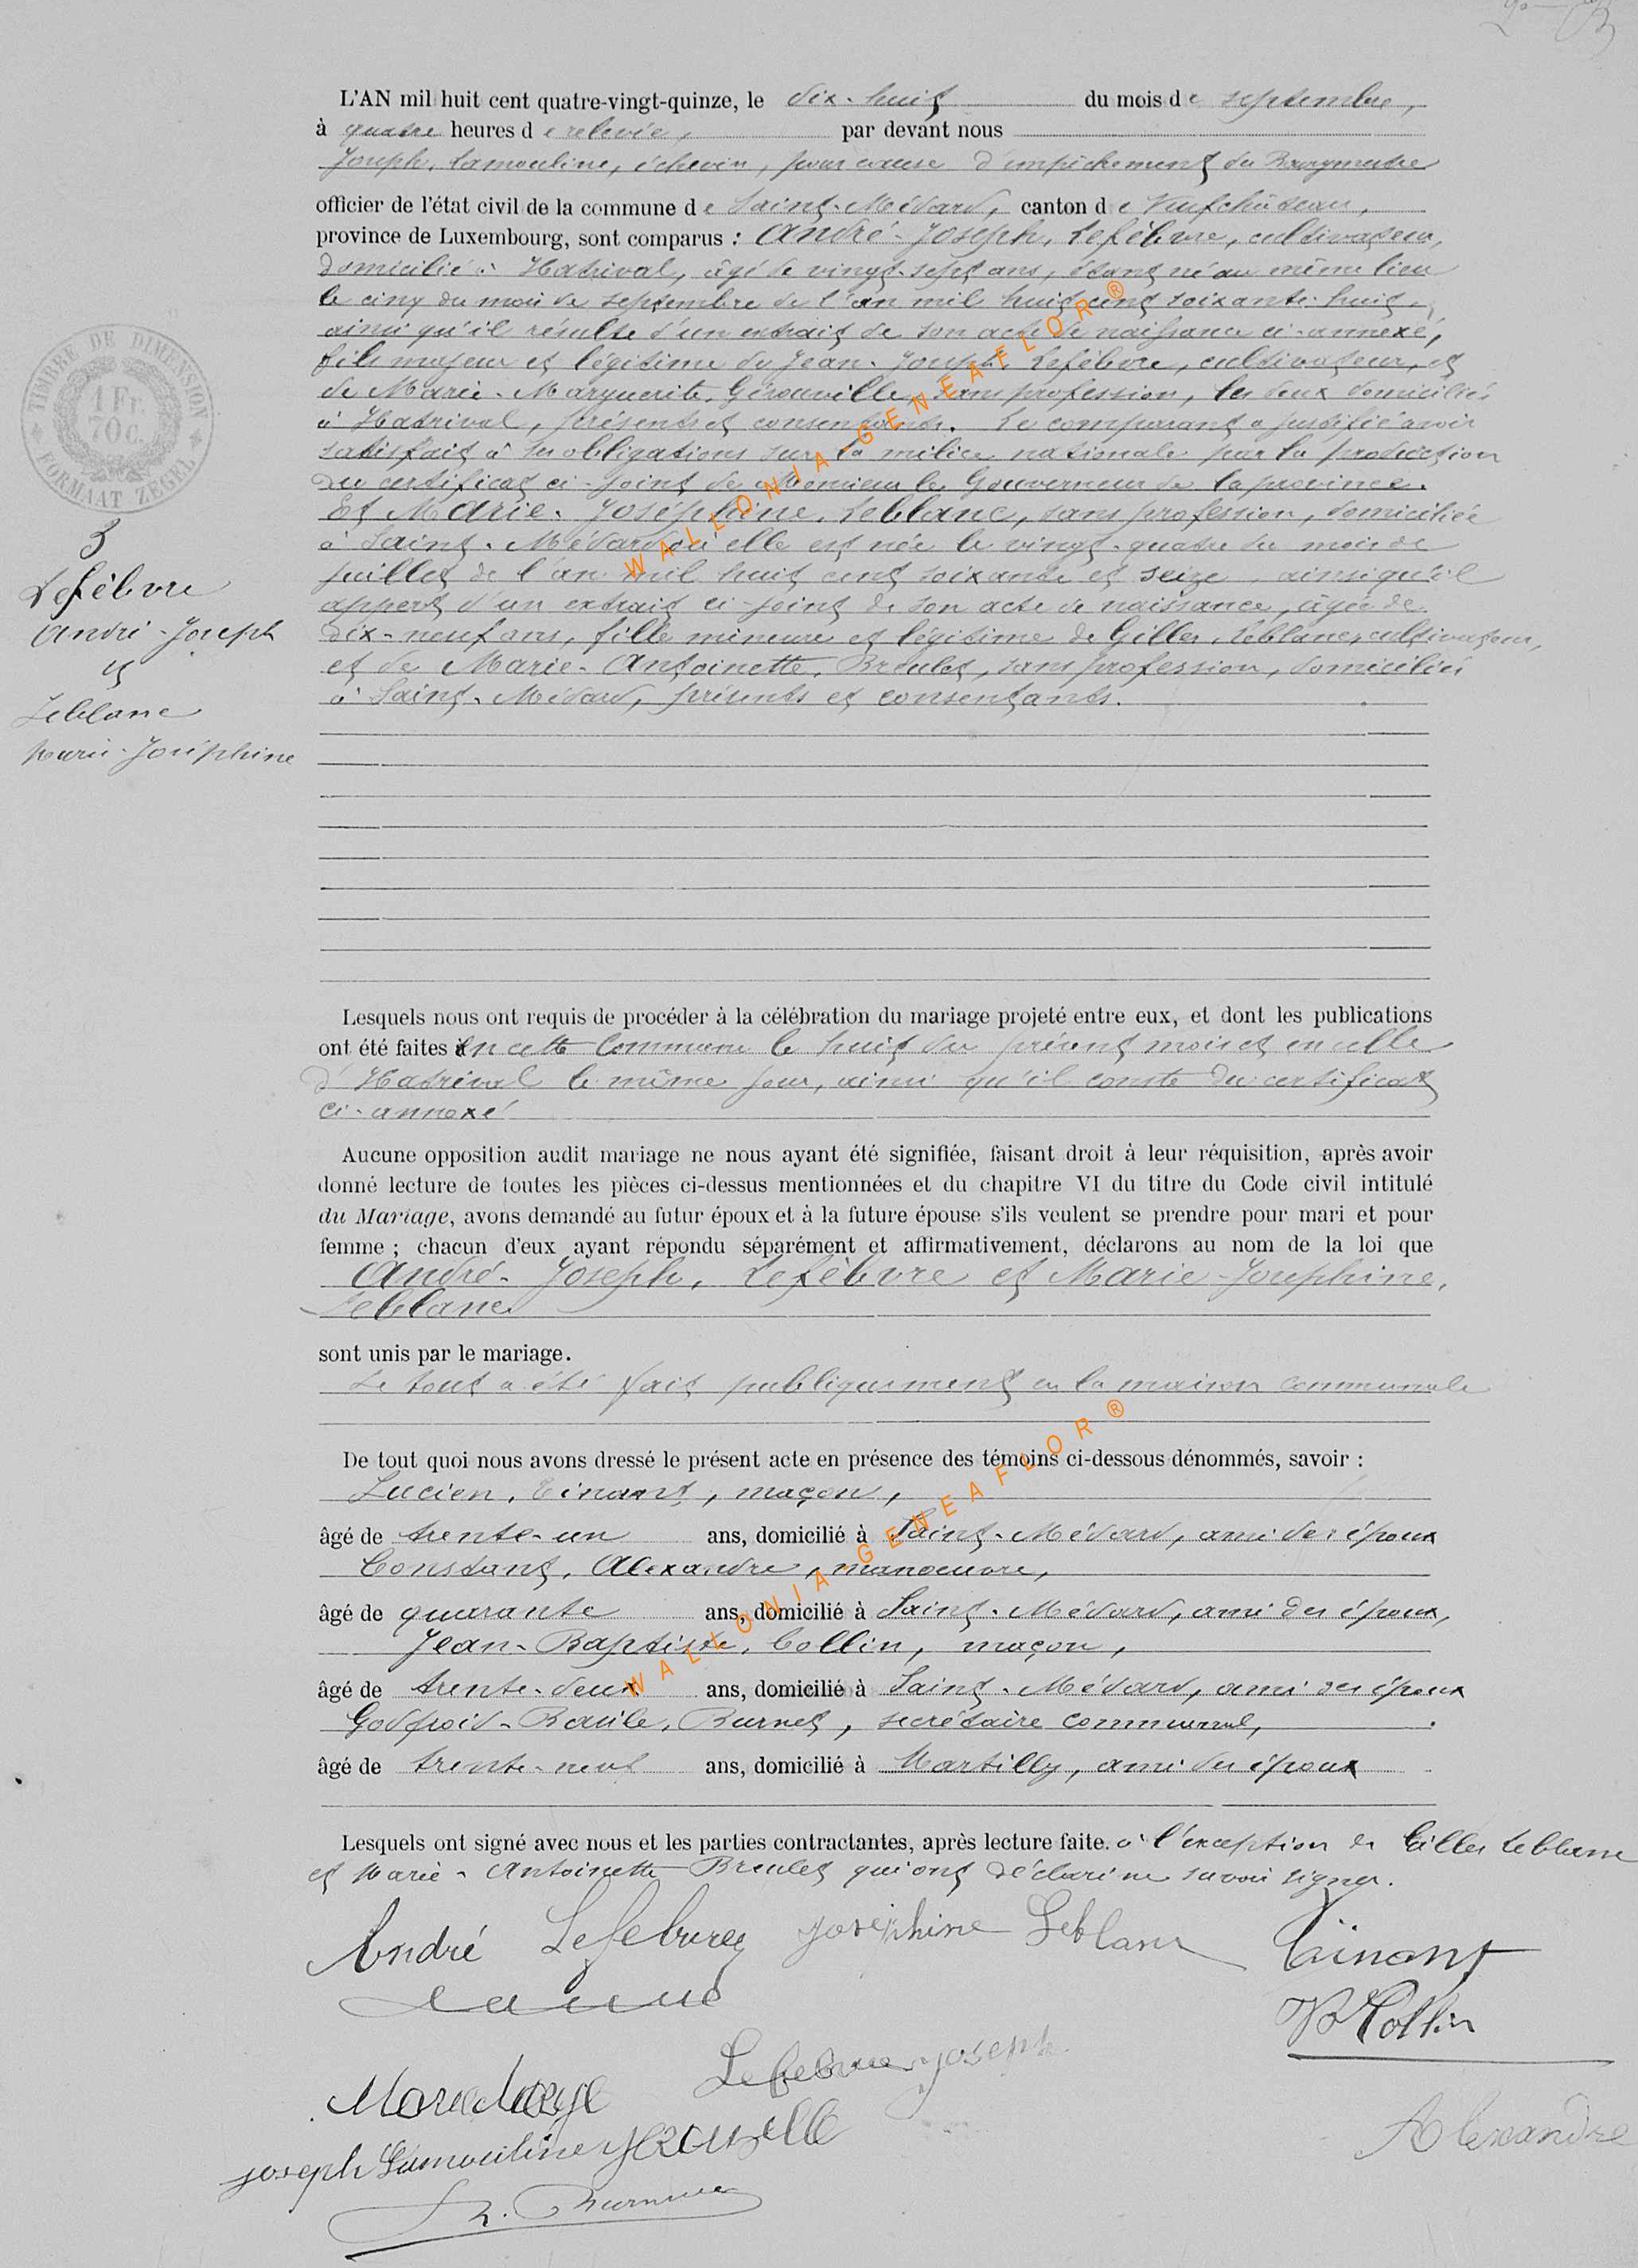 L'AN mil huit cent quatre-vingt-quinze, le dix-huit du mois de septembre,
à quatre heures de relevée, par devant nous
Joseph, Lamouline, échevin, pour cause d'empêchement du Bourgmestre
officier de l'état civil de la commune de Saint-Médard, canton de Neufchâteau,
province de Luxembourg, sont comparus : André-Joseph, Lefèbvre, cultivateur,
domicilié à Hatrival, âgé de vingt-sept ans, étant né au même lieu
le cinq du mois de septembre de l'an mil huit cent soixante-huit,
ainsi qu'il résulte d'un extrait de son acte de naissance ci-annexé,
fils majeur et légitime de Jean-Joseph Lefèbvre, cultivateur, et
de Marie-Marguerite, Gérouville, sans profession, les deux domiciliés
à Hatrival, présents et consentants. Le comparant a justifié avoir
satisfait à ses obligations sur la milice nationale par la production
du certificat ci-joint de Monsieur le Gouverneur de la province.
Et Marie-Joséphine, Leblanc, sans profession, domiciliée
à Saint-Médard où elle est née le vingt-quatre du mois de
juillet de l'an mil huit cent soixante et seize, ainsi qu'il
appert d'un extrait ci-joint de son acte de naissance, âgée de
dix-neuf ans, fille mineure et légitime de Gilles, Leblanc, cultivateur,
et de Marie-Antoinette, Breulet, sans profession, domiciliés
à Saint-Médard, présents et consentants.
TIMBRE DE DIMENSION
1 Fr.
70 c.
FORMAAT ZEGEL
3
Lefèbvre
André-Joseph
et
Leblanc
Marie-Joséphine
Lesquels nous ont requis de procéder à la célébration du mariage projeté entre eux, et dont les publications
ont été faites en cette commune le huit du présent mois et en celle
d'Hatrival le même jour, ainsi qu'il conste du certificat
ci-annexé
Aucune opposition audit mariage ne nous ayant été signifiée, faisant droit à leur réquisition, après avoir
donné lecture de toutes les pièces ci-dessus mentionnées et du chapitre VI du titre du Code civil intitulé
du Mariage, avons demandé au futur époux et à la future épouse s'ils veulent se prendre pour mari et pour
femme ; chacun d'eux ayant répondu séparément et affirmativement, déclarons au nom de la loi que
André-Joseph, Lefèbvre et Marie-Joséphine,
Leblanc
sont unis par le mariage.
Le tout a été fait publiquement en la maison communale
De tout quoi nous avons dressé le présent acte en présence des témoins ci-dessous dénommés, savoir :
Lucien, Tinant, maçon,
âgé de trente-un ans, domicilié à Saint-Médard, ami des époux
Constant, Alexandre, manoeuvre,
âgé de quarante ans, domicilié à Saint-Médard, ami des époux,
Jean-Baptiste, Collin, maçon,
âgé de trente-deux ans, domicilié à Saint-Médard, ami des époux
Godfroid-Basile, Burnet, secrétaire communal,
âgé de trente-neuf ans, domicilié à Martilly, ami des époux
Lesquels ont signé avec nous et les parties contractantes, après lecture faite. à l'exception de Gilles Leblanc
et Marie-Antoinette Breulet qui ont déclaré ne savoir signer.
André Lefebvre Joséphine Leblanc Tinant
JB Collin
Lefebvre joseph
joseph Lamouline
Alexandre
WALLONIA-GENEAFLOR®
WALLONIA-GENEAFLOR®